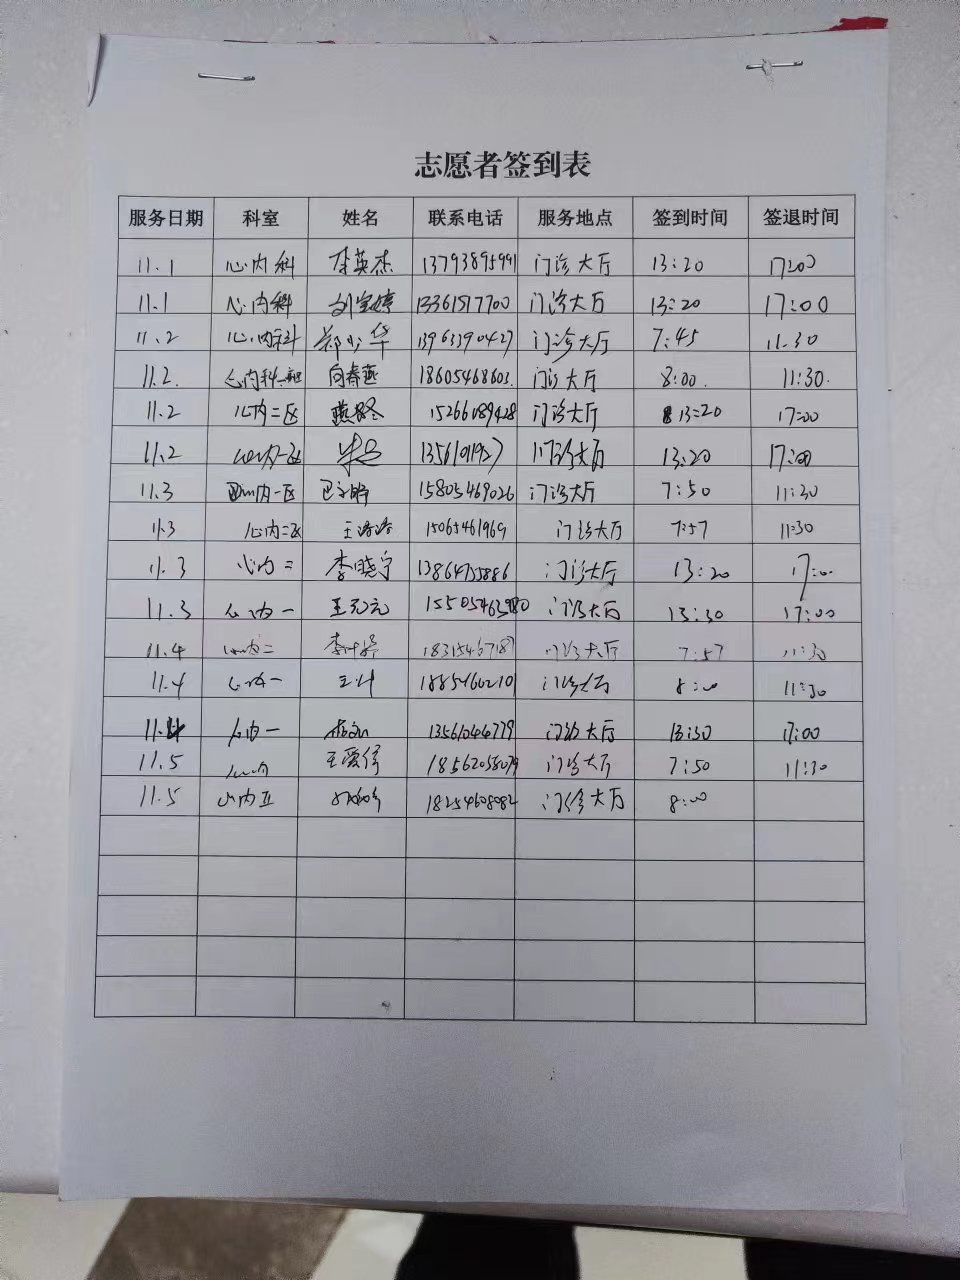 志愿者签到表
服务日期 科室 姓名 联系电话 服务地点 签到时间 签退时间
11.1 心内科 李英杰 13793895991 门诊大厅 13:20 17:00
11.1 心内科 刘宝婷 门诊大厅 13:20 17:00
11.2 心内科 郑少华 门诊大厅 7:45 11.30
11.2. 心内科一区 向春燕 18605468603. 门诊大厅 8:00. 11:30.
11.2 心内二区 门诊大厅 13:20 17:00
11.2 心内一区 门诊大厅 13:20 17:00
11.3 心内一区 15805469026 门诊大厅 7:50 11:30
11.3 心内二区 王洛洛 15065461969 门诊大厅 7:57 11:30
11.3 心内二 李晓宁 门诊大厅 13:20 17:00
11.3 心内一 王元元 门诊大厅 13:30 17:00
11.4 心内二 门诊大厅 7:57 11:30
11.4 心内一 门诊大厅 8:00 11:30
11.4 心内一 13561046779 门诊大厅 13:30 17:00
11.5 心内 18562058079 门诊大厅 7:50 11:30
11.5 心内五 18254608082 门诊大厅 8:00